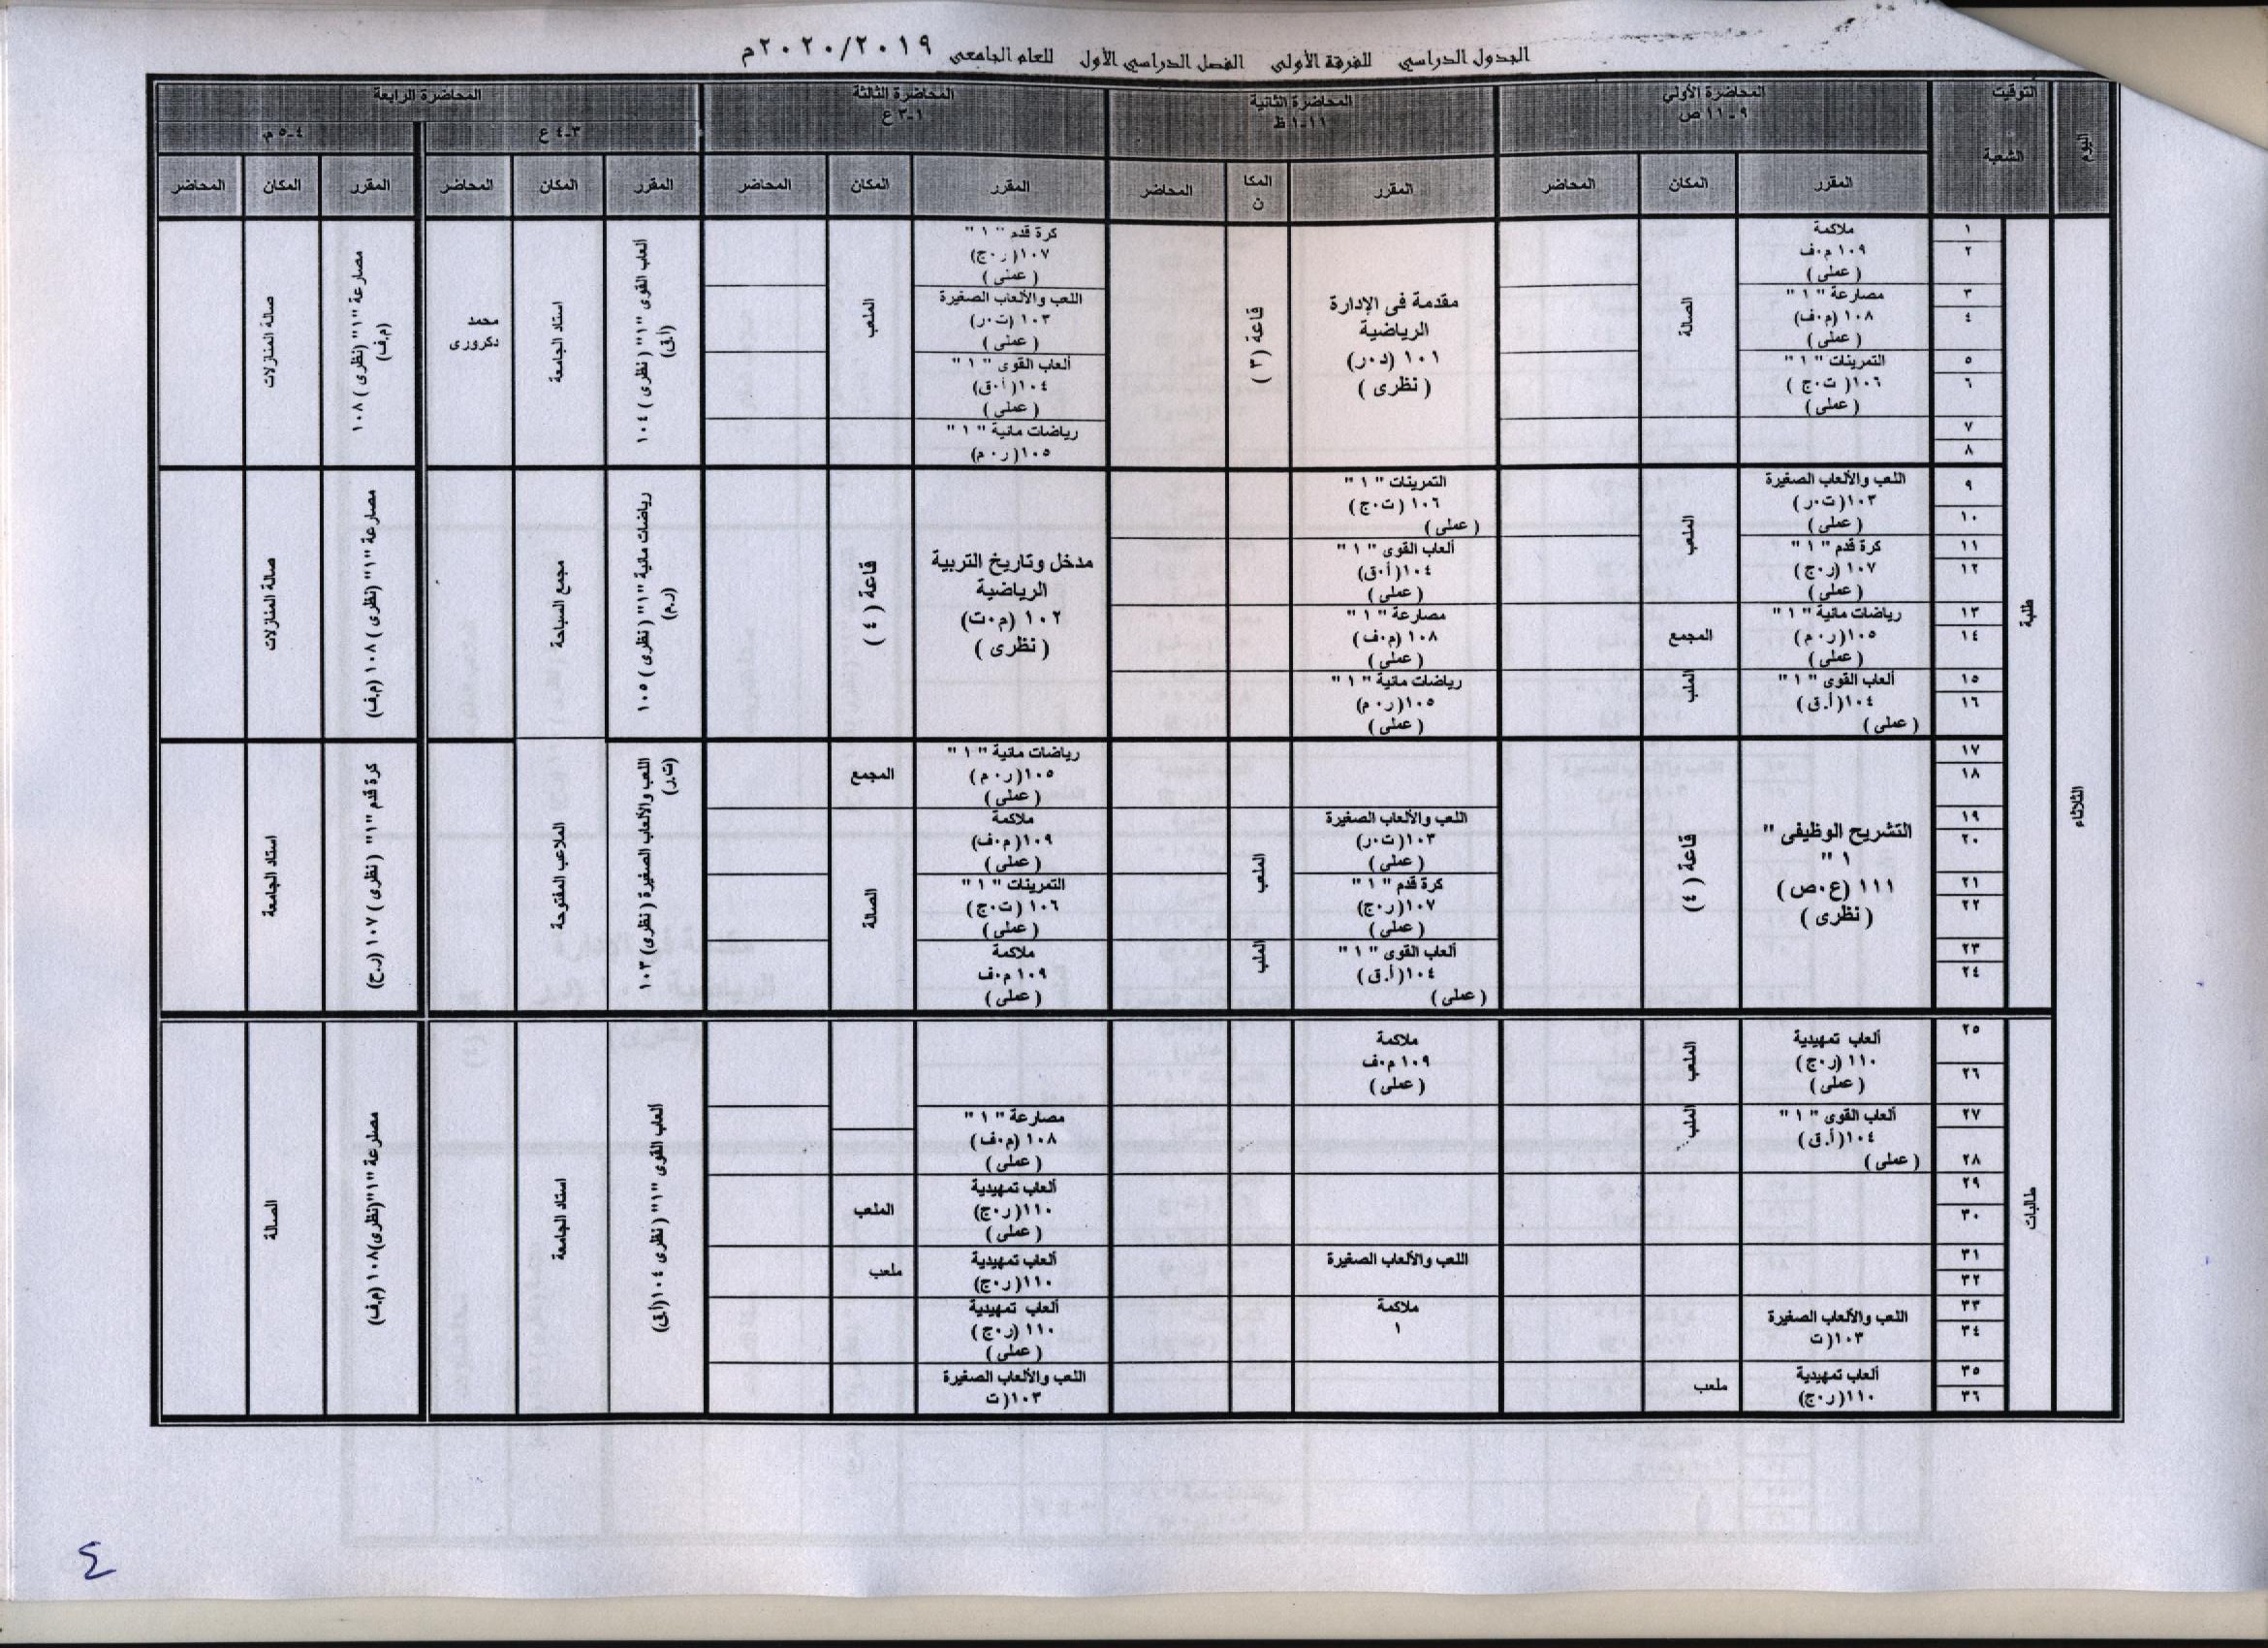 الجدول الدراسي للفرقة الأولى الفصل الدراسي الأول للعام الجامعى ٢٠٢٠/٢٠١٩م
اليوم
التوقيت
الشعبة
المحاضرة الأولي
٩-١١ ص
المحاضرة الثانية
١١-١ ظ
المحاضرة الثالثة
١-٣ ع
المحاضرة الرابعة
٣-٤ ع
٤-٥ م
المقرر
المكان
المحاضر
المقرر
المكا
ن
المحاضر
المقرر
المكان
المحاضر
المقرر
المكان
المحاضر
المقرر
المكان
المحاضر
الثلاثاء
طلبة
١
٢
٣
٤
٥
٦
٧
٨
ملاكمة
١٠٩ م.ف
(عملى)
مصارعة " ١ "
١٠٨ (م.ف)
(عملى)
التمرينات " ١ "
١٠٦( ت.ج )
(عملى)
الصالة
مقدمة فى الإدارة
الرياضية
١٠١ (د.ر)
( نظرى )
قاعة (٣ )
كرة قدم " ١ "
١٠٧( ر.ج)
(عملى)
اللعب والألعاب الصغيرة
١٠٣ (ت.ر)
(عملى)
ألعاب القوى " ١ "
١٠٤( أ.ق)
(عملى)
رياضات مائية " ١ "
١٠٥( ر.م)
الملعب
ألعاب القوى "١" ( نظرى ) ١٠٤
(أ.ق)
استاد الجامعة
محمد
دكرورى
مصارعة "١" (نظرى ) ١٠٨
(م.ف)
صالة المنازلات
٩
١٠
١١
١٢
١٣
١٤
١٥
١٦
اللعب والألعاب الصغيرة
١٠٣( ت.ر )
(عملى)
كرة قدم " ١ "
١٠٧ (ر.ج)
(عملى)
رياضات مائية " ١ "
١٠٥( ر.م )
(عملى)
ألعاب القوى " ١ "
١٠٤( أ.ق )
(عملى)
الملعب
المجمع
الملب
التمرينات " ١ "
١٠٦ ( ت.ج)
(عملى)
ألعاب القوى " ١ "
١٠٤( أ.ق)
(عملى)
مصارعة " ١ "
١٠٨ (م.ف )
(عملى)
رياضات مائية " ١ "
١٠٥( ر.م )
(عملى)
مدخل وتاريخ التربية
الرياضية
١٠٢ (م.ت)
( نظرى )
قاعة ( ٤ )
رياضات مائية "١" ( نظرى ) ١٠٥
(ر.م)
مجمع السباحة
مصارعة "١" (نظرى ) ١٠٨ (م.ف)
صالة المنازلات
١٧
١٨
١٩
٢٠
٢١
٢٢
٢٣
٢٤
التشريح الوظيفى "
١ "
١١١ (ع.ص )
( نظرى )
قاعة ( ٤)
اللعب والألعاب الصغيرة
١٠٣( ت.ر)
(عملى)
كرة قدم " ١ "
١٠٧( ر.ج)
(عملى)
ألعاب القوى " ١ "
١٠٤( أ.ق )
(عملى)
الملعب
الملب
رياضات مائية " ١ "
١٠٥( ر.م )
(عملى)
ملاكمة
١٠٩( م.ف)
(عملى)
التمرينات " ١ "
١٠٦ ( ت.ج)
(عملى)
ملاكمة
١٠٩ م.ف
(عملى)
المجمع
الصالة
اللعب والألعاب الصغيرة ( نظرى) ١٠٣
(ت.ر)
الملاعب المفتوحة
كرة قدم "١" ( نظرى ) ١٠٧ (ر.ج)
استاد الجامعة
طالبات
٢٥
٢٦
٢٧
٢٨
٢٩
٣٠
٣١
٣٢
٣٣
٣٤
٣٥
٣٦
ألعاب تمهيدية
١١٠ (ر.ج )
(عملى)
ألعاب القوى " ١ "
١٠٤( أ.ق )
(عملى)
اللعب والألعاب الصغيرة
١٠٣( ت
ألعاب تمهيدية
١١٠( ر.ج)
الملعب
الملب
ملعب
ملاكمة
١٠٩ م.ف
(عملى)
اللعب والألعاب الصغيرة
ملاكمة
١
مصارعة " ١ "
١٠٨ (م.ف )
(عملى)
ألعاب تمهيدية
١١٠( ر.ج)
(عملى)
ألعاب تمهيدية
١١٠( ر.ج)
ألعاب تمهيدية
١١٠ (ر.ج )
(عملى)
اللعب والألعاب الصغيرة
١٠٣( ت
الملعب
ملعب
ألعاب القوى "١" ( نظرى ١٠٤(أ.ق)
استاد الجامعة
مصارعة "١"(نظرى)١٠٨ (م.ف)
الصالة
٤